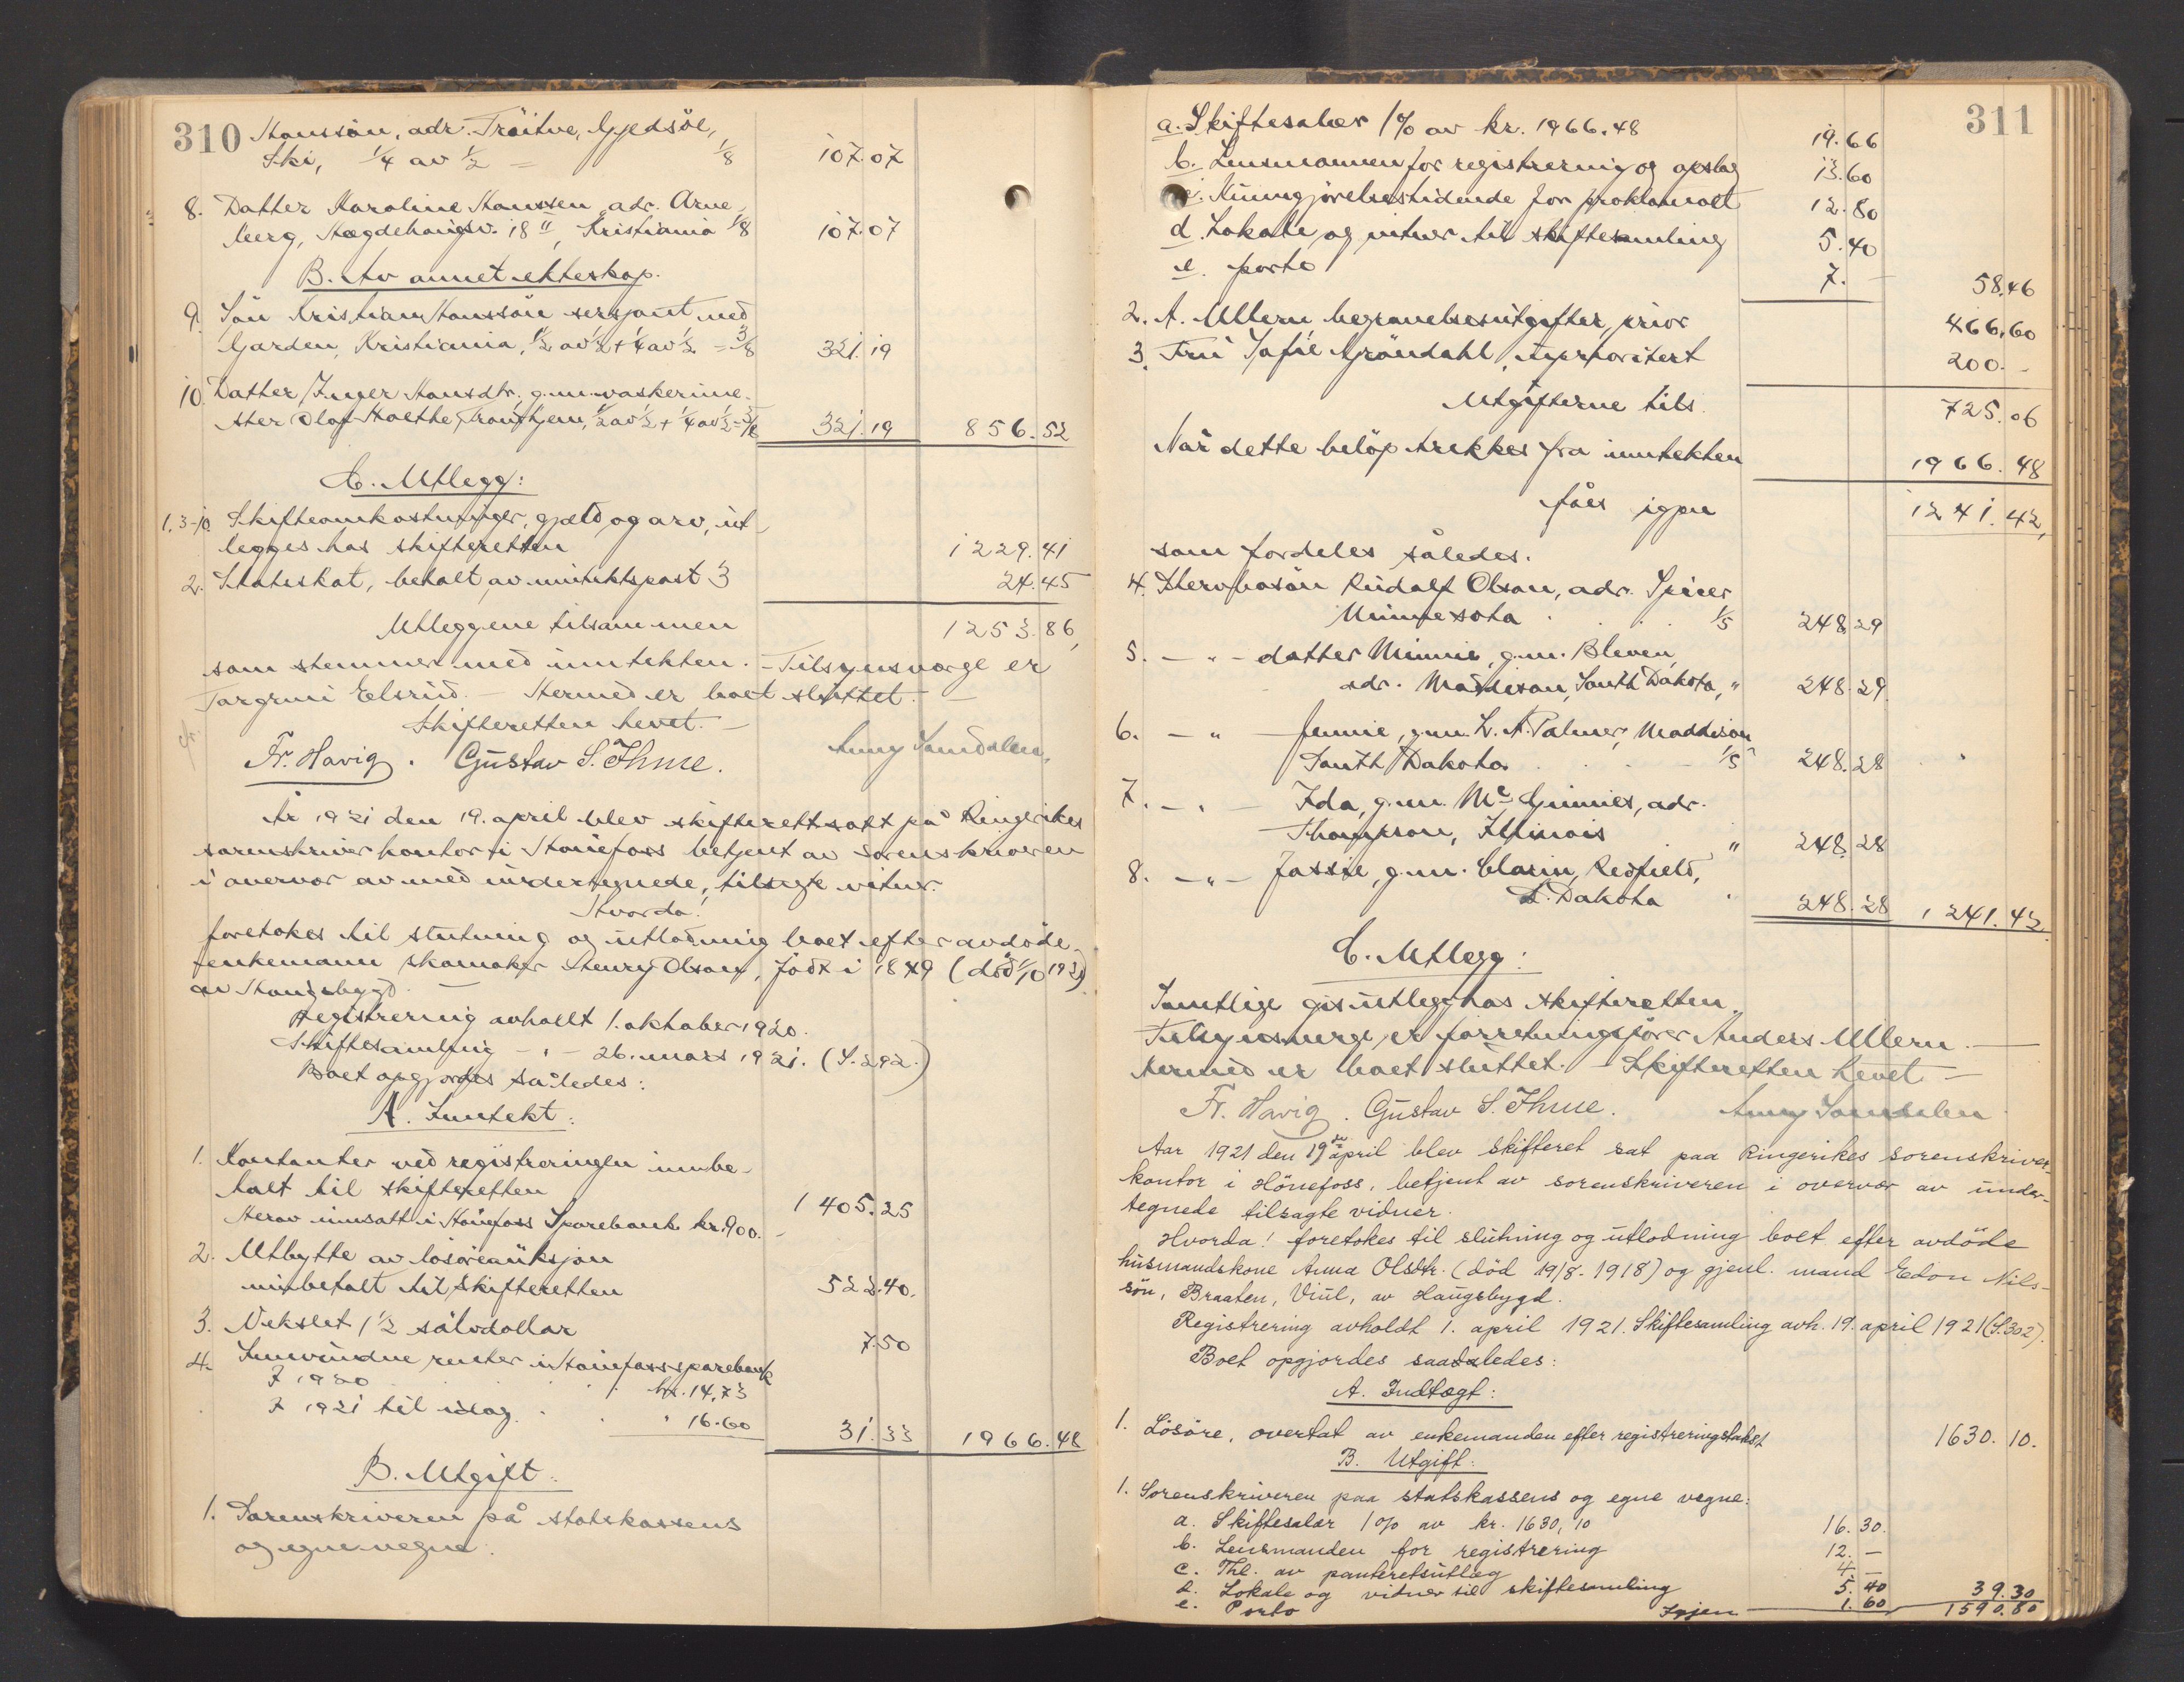 310
Hanssön, adr. Träitve, Gjedsöe,
Ski, 1/4 av 1/2 = 1/8 107.07
8. Datter Karoline Hanssen adr. Arne
berg, Hægdehaugsv. 18 II, Kristiania 1/8 107.07
B. Av annet ekteskap.
9. Sön Kristian Hanssön sersjant ved
Garden, Kristiania, 1/2 av 1/2 + 1/4 av 1/2 = 3/8 321.19
10. Datter Inger Hansdtr. g.m. vaskerime-
ster Olaf Holthe, Trondhjem, 1/2 av 1/2 + 1/4 av 1/2 = 3/8 321.19 856.52
C. Utlegg:
1.3-10. Skifteomkostninger, gjæld og arv, ut-
legges hos skifteretten 1229.41
2. Statsskat, betalt av inntektspost 3 24.45
Utleggene tilsammen 1253.86,
som stemmer med inntekten. – Tilsynsverge er
Torgrim Elsrud. – Hermed er boet sluttet. –
Skifteretten hevet. –
Fr. Havig. Gustav S. Thme. Anny Sandalen.
År 1921 den 19. april blev skifterett satt på Ringerikes
sorenskriverkontor i Hönefoss betjent av sorenskriveren
i overvær av med undertegnede, tilsagte vitner.
Hvorda!
foretokes til slutning og utlodning boet efter avdöde
enkemann skomaker Henry Olsen, födt i 1849 (död 1/10 1920)
av Haugsbygd. –
Registrering avholt 1. oktober 1920.
Skiftesamling – " – 26. mars 1921. (S. 292.)
Boet opgjordes således:
A. Inntekt:
1. Kontanter ved registreringen innbe-
talt til skifteretten 1 405.25
Herav innsatt i Hönefoss Sparebank kr. 900. –
2. Utbytte av lösöreauksjon
innbetalt til skifteretten 522.40.
3. Vekslet 1 1/2 sölvdollar 7.50
4. Innvundne renter i Hönefoss sparebank
I 1920 kr. 14.73
I 1921 til idag " 16.60 31.33 1966.48
B. Utgift:
1. Sorenskriveren på statskassens
og egne vegne:
311
a. Skiftesalær 1% av kr. 1966.48 19.66
b. Lensmannen for registrering og opslag 13.60
c. Kunngjörelsestidende for proklamaet 12.80
d. Lokale og vitner til skiftesamling 5.40
e. porto 7. – 58.46
2. A. Ullern, begravelsesutgifter, prior 466.60
3. Fru Sofie Gröndahl, uprioritert 200. –
Utgifterne tils. 725.06
Når dette belöp trekkes fra inntekten 1966.48
fåes igjen 1241.42,
som fordeles således:
4. Stervbosön Rudolf Olson, adr. Spicer
Minnesota 1/5 248.29
5. – " – datter Minnie, g.m. Bleven
adr. Maddison, South Dakota, " 248.29
6. – " – Jennie, g.m. L. A. Palmer, Maddison
South Dakota 1/5 248.28
7. – " – Ida, g.m. Mc Ginnies, adr.
Thompson, Illinois " 248.28
8. – " – Jossie, g.m. Clarin, Redfield,
S. Dakota " 248.28 1241.42.
C. Utlegg:
Samtlige gis utlegg hos skifteretten.
Tilsynsverge er forretningsförer Anders Ullern. –
Hermed er boet sluttet. – Skifteretten hevet –
Fr. Havig. Gustav S. Thme. Anny Sandalen
Aar 1921 den 19de april blev skifteret sat paa Ringerikes sorenskriver-
kontor i Hönefoss, betjent av sorenskriveren i overvær av under-
tegnede tilsagte vidner.
Hvorda! foretokes til slutning og utlodning boet efter avdöde
husmandskone Anna Olsdtr. (död 19/8-1918) og gjenl. mand Edon Nils-
sön, Braaten, Viul, av Haugsbygd.
Registrering avholdt 1. april 1921. Skiftesamling avh. 19. april 1921 (S. 302).
Boet opgjordes saaledes:
A. Indtægt:
1. Lösöre, overtat av enkemanden efter registreringstakst 1630.10.
B. Utgift:
1. Sorenskriveren paa statskassens og egne vegne:
a. Skiftesalær 1% av kr. 1630,10 16.30.
b. Lensmanden for registrering 12. –
c. Thl. av panteretsutlæg 4. –
d. Lokale og vidner til skiftesamling 5.40
e. Porto 1.60 39.30
Igjen 1590.80